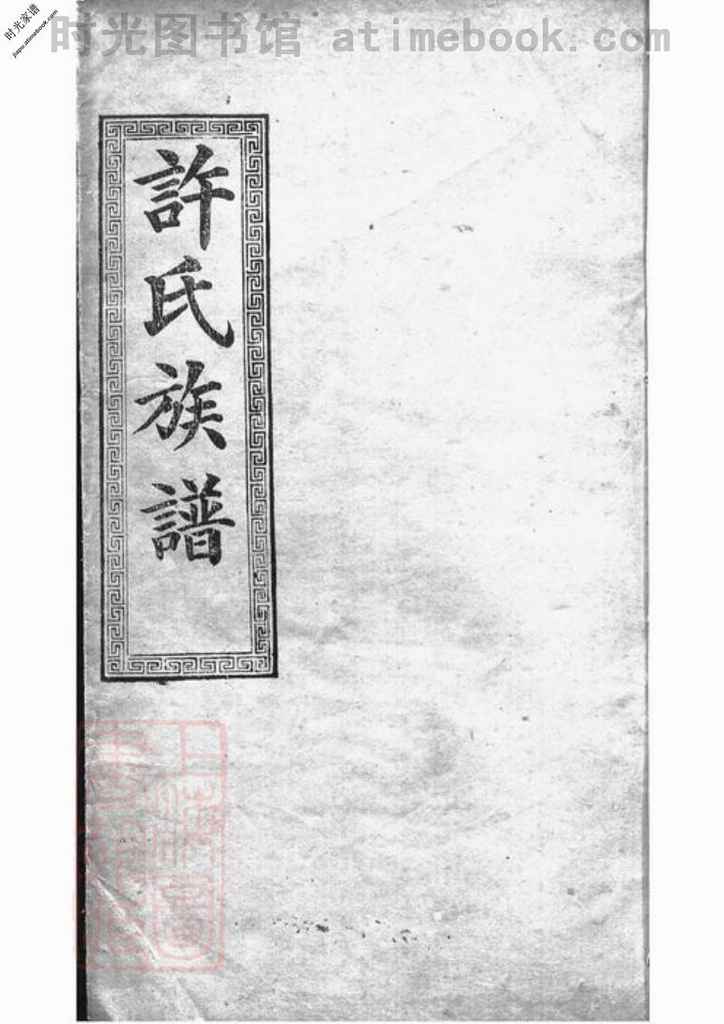 时光家谱
jiapu.atimebook.com
时光图书馆 atimebook.com
許氏族譜